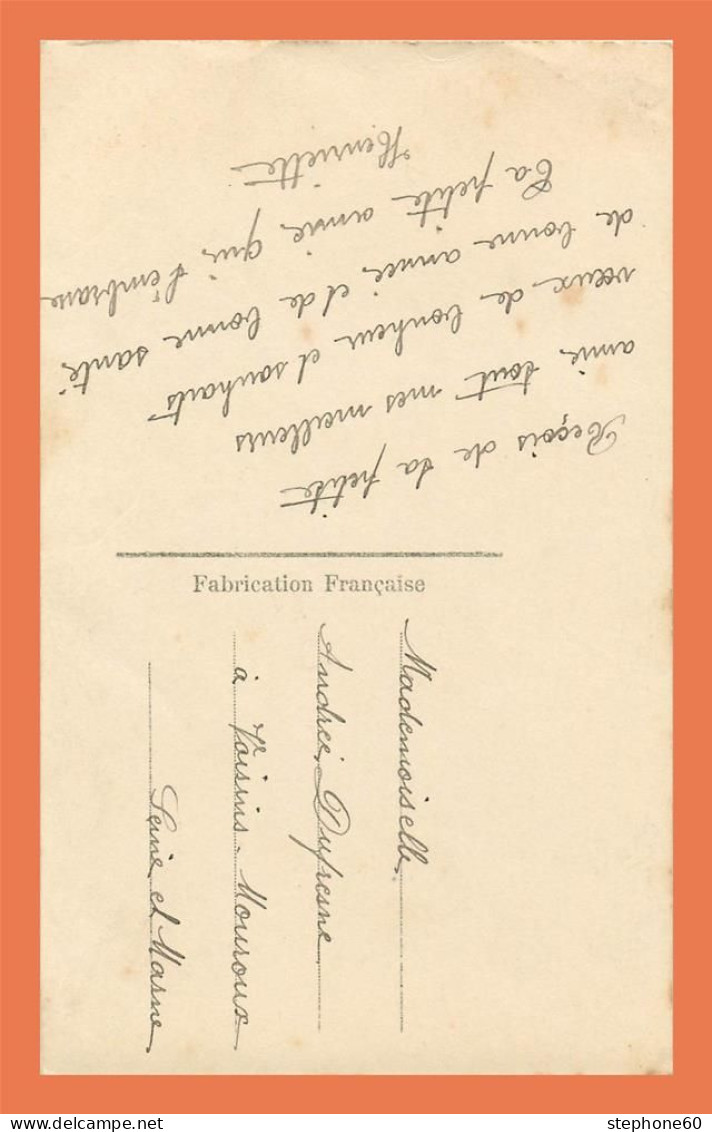 Reçois de ta petite
amie tout mes meilleurs
vœux de bonheur et souhaits
de bonne année et de bonne santé
Ta petite amie qui t'embrasse
Henriette
Fabrication Française
Mademoiselle
Andrée Dufresne
à Voisins-Mouroux
Seine et Marne
stephone60